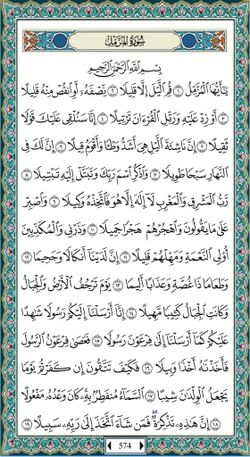 سُورَةُ الْمُزَّمِّلِ
بِسْمِ اللَّهِ الرَّحْمَٰنِ الرَّحِيمِ
يَٰٓأَيُّهَا ٱلْمُزَّمِّلُ ١ قُمِ ٱلَّيْلَ إِلَّا قَلِيلًا ٢ نِّصْفَهُۥٓ أَوِ ٱنقُصْ مِنْهُ قَلِيلًا
٣ أَوْ زِدْ عَلَيْهِ وَرَتِّلِ ٱلْقُرْءَانَ تَرْتِيلًا ٤ إِنَّا سَنُلْقِى عَلَيْكَ قَوْلًا
ثَقِيلًا ٥ إِنَّ نَاشِئَةَ ٱلَّيْلِ هِىَ أَشَدُّ وَطْـًٔا وَأَقْوَمُ قِيلًا ٦ إِنَّ لَكَ فِى
ٱلنَّهَارِ سَبْحًا طَوِيلًا ٧ وَٱذْكُرِ ٱسْمَ رَبِّكَ وَتَبَتَّلْ إِلَيْهِ تَبْتِيلًا ٨
رَّبُّ ٱلْمَشْرِقِ وَٱلْمَغْرِبِ لَآ إِلَٰهَ إِلَّا هُوَ فَٱتَّخِذْهُ وَكِيلًا ٩ وَٱصْبِرْ
عَلَىٰ مَا يَقُولُونَ وَٱهْجُرْهُمْ هَجْرًا جَمِيلًا ١٠ وَذَرْنِى وَٱلْمُكَذِّبِينَ
أُو۟لِى ٱلنَّعْمَةِ وَمَهِّلْهُمْ قَلِيلًا ١١ إِنَّ لَدَيْنَآ أَنكَالًا وَجَحِيمًا ١٢
وَطَعَامًا ذَا غُصَّةٍ وَعَذَابًا أَلِيمًا ١٣ يَوْمَ تَرْجُفُ ٱلْأَرْضُ وَٱلْجِبَالُ
وَكَانَتِ ٱلْجِبَالُ كَثِيبًا مَّهِيلًا ١٤ إِنَّآ أَرْسَلْنَآ إِلَيْكُمْ رَسُولًا شَٰهِدًا
عَلَيْكُمْ كَمَآ أَرْسَلْنَآ إِلَىٰ فِرْعَوْنَ رَسُولًا ١٥ فَعَصَىٰ فِرْعَوْنُ ٱلرَّسُولَ
فَأَخَذْنَٰهُ أَخْذًا وَبِيلًا ١٦ فَكَيْفَ تَتَّقُونَ إِن كَفَرْتُمْ يَوْمًا
يَجْعَلُ ٱلْوِلْدَٰنَ شِيبًا ١٧ ٱلسَّمَآءُ مُنفَطِرٌۢ بِهِۦ كَانَ وَعْدُهُۥ مَفْعُولًا
١٨ إِنَّ هَٰذِهِۦ تَذْكِرَةٌ فَمَن شَآءَ ٱتَّخَذَ إِلَىٰ رَبِّهِۦ سَبِيلًا ١٩
574